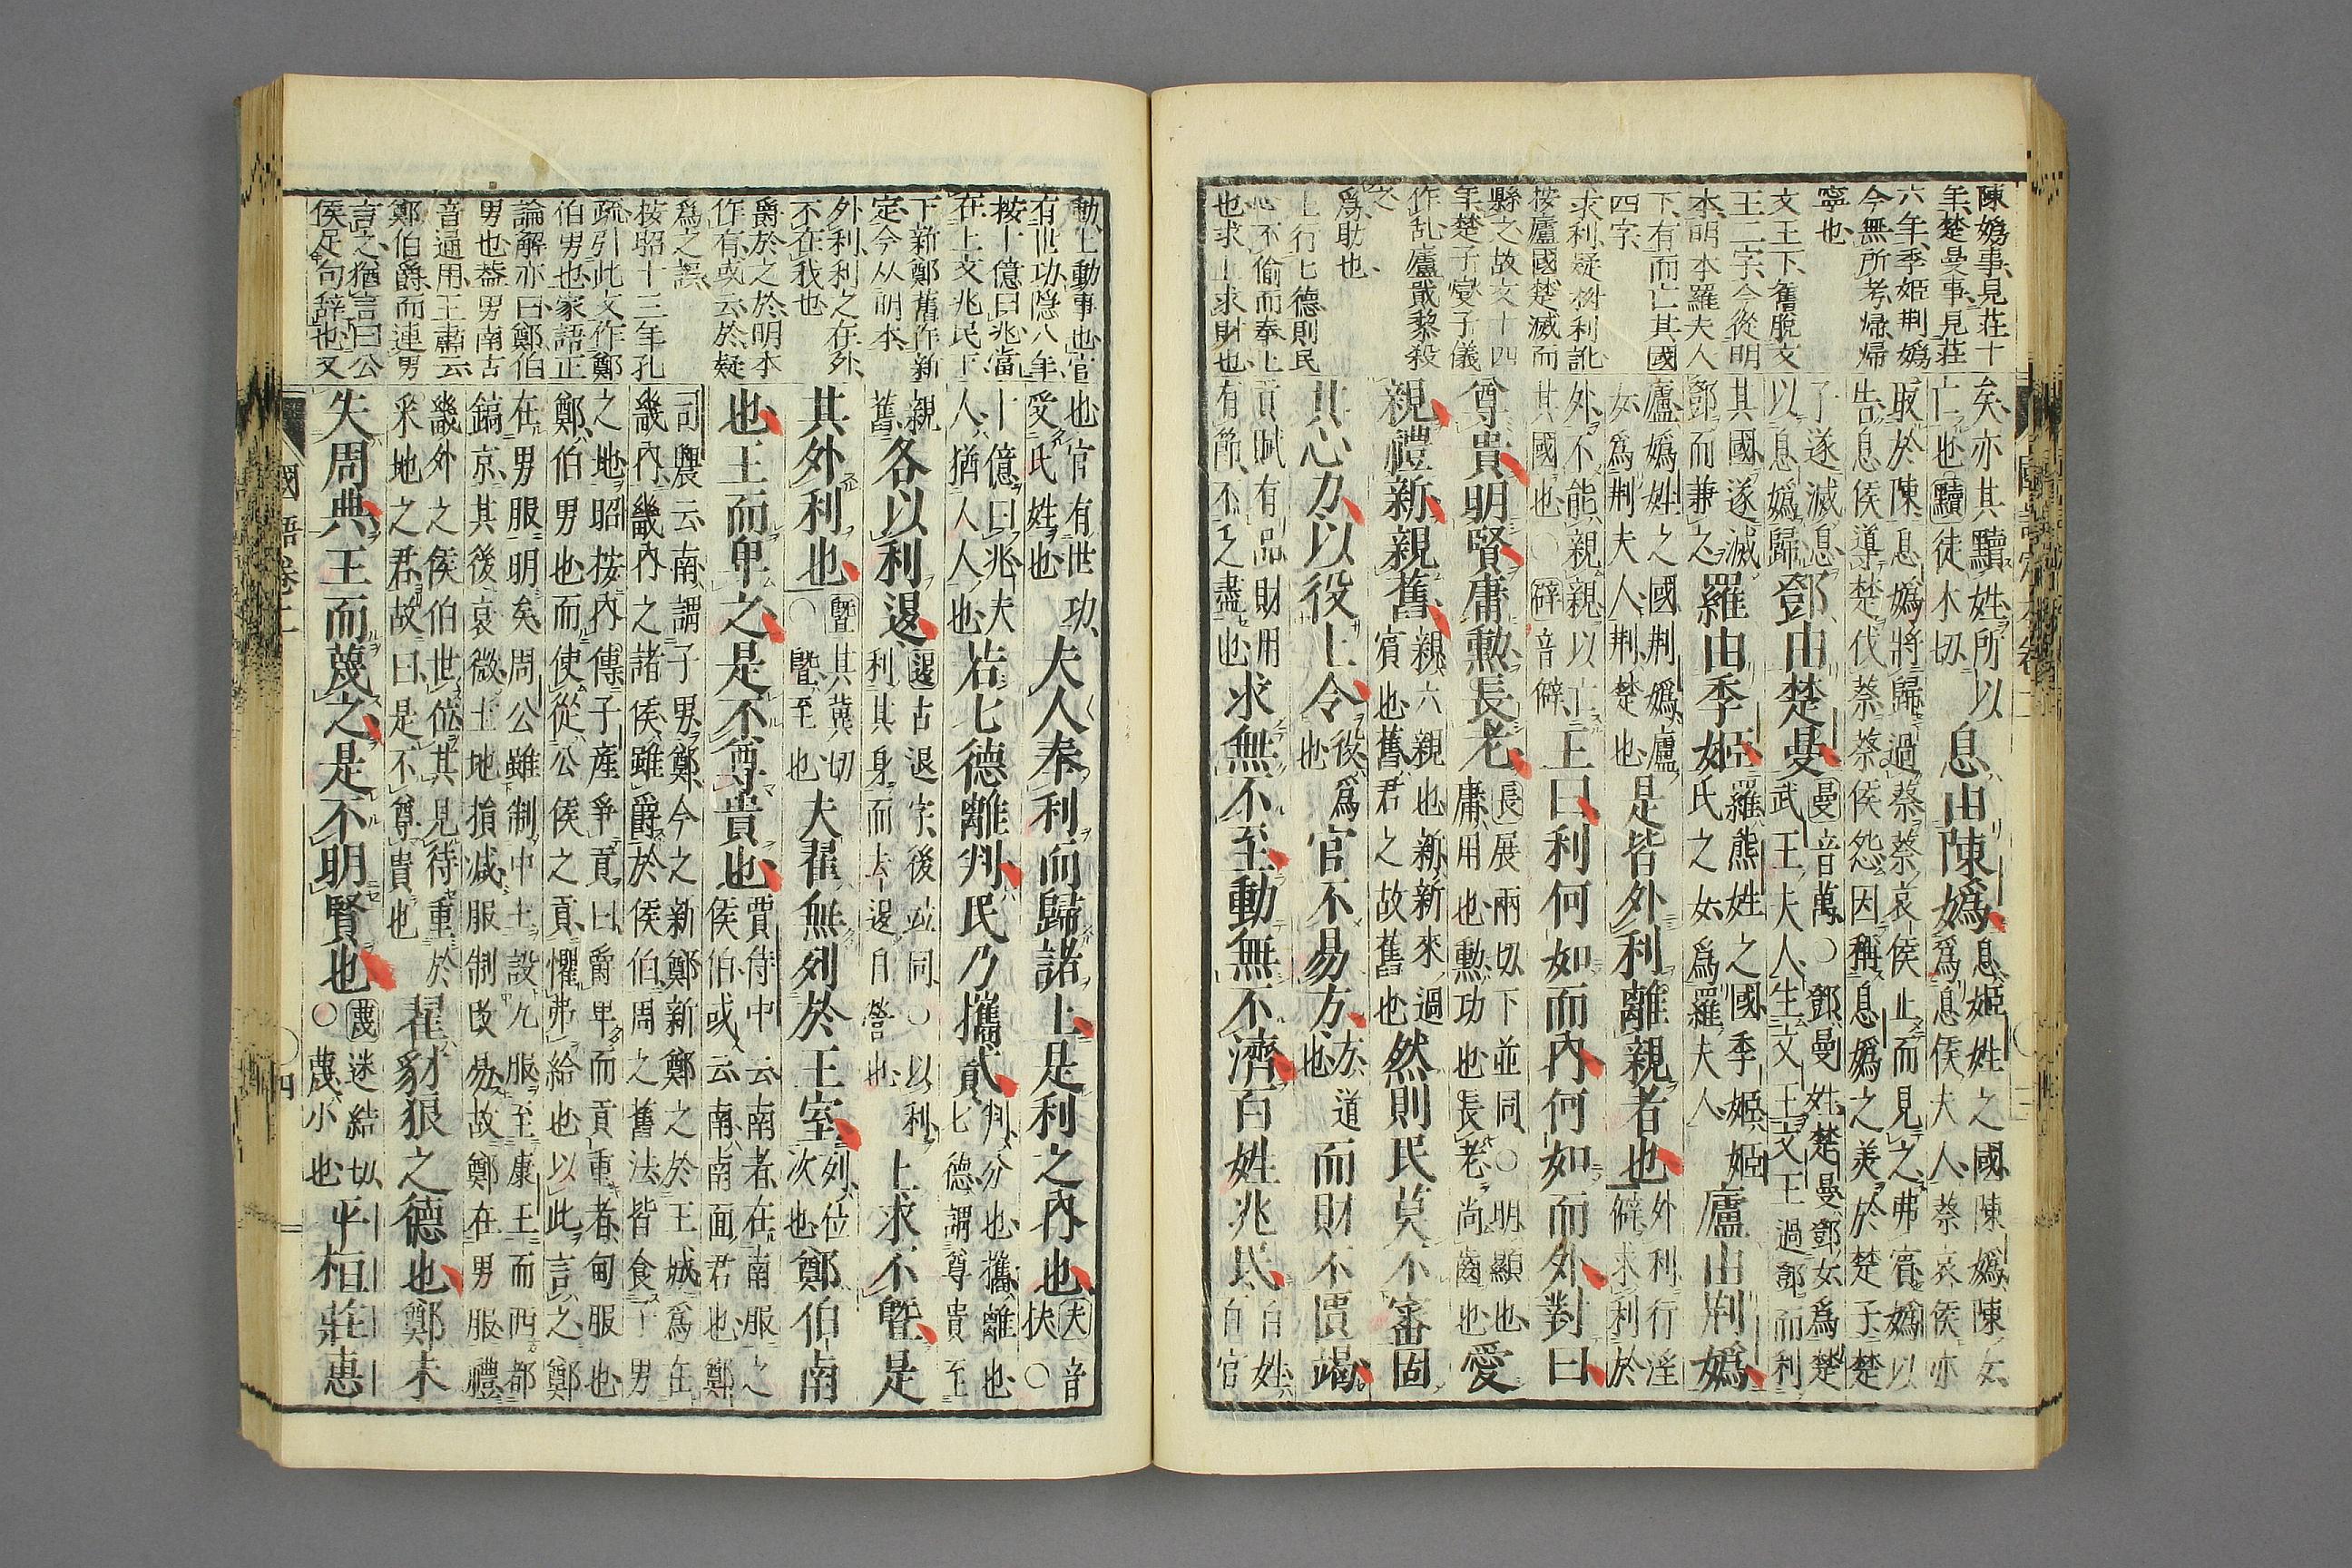 陳嬀事見莊十
年楚曼事見莊
六年季姬荆嬀
今無所考歸歸
寧也
文王下舊脫文
王二字今從明
本明本羅夫人
下有而亡其國
四字
求利疑樹利訛
按廬國楚滅而
縣之故文十四
年楚子燮子儀
作乱廬戢黎殺
之
爲助也
上行七德則民
心不偷而奉上
也求上求財也
矣亦其黷姓所以亡也黷徒木切息由陳嬀息姬姓之國陳嬀陳女爲息侯夫人蔡哀侯亦
取於陳息嬀將歸過蔡蔡哀侯止而見之弗賓嬀以告息侯道楚伐蔡蔡侯怨因稱息嬀之美於楚子楚
子遂滅息以息嬀歸鄧由楚曼曼音萬○鄧曼姓楚曼鄧女爲楚武王夫人生文王文王過鄧而利
其國遂滅鄧而兼之羅由季姬羅熊姓之國季姬姬氏之女爲羅夫人廬由荆嬀
廬嬀姓之國荆嬀廬女爲荆夫人荆楚也是皆外利離親者也外利行淫僻求利於
外不能親親以亡其國也○僻音僻王曰利何如而內何如而外對曰
尊貴明賢庸勳長老長展兩切下並同○明顯也庸用也勳功也長老尚齒也愛
親禮新親舊親六親也新新來過賓也舊君之故舊也然則民莫不審固
其心力以役上令役爲也官不易方方道也而財不匱竭
貢賦有品財用有節不乏盡也求無不至動無不濟百姓兆民百姓百官
動上動事也官
有世功隐八年
按十億曰兆當
在上文兆民下
下新鄭舊作新
定今从明本
外利利之在外
不在我也
爵於之於明本
作有或云於疑
爲之誤
按昭十三年孔
疏引此文作鄭
伯男也家語正
論解亦曰鄭伯
男也葢男南古
音通用王肅云
鄭伯爵而連男
言之猶言曰公
侯足句辞也又
也官有世功受氏姓也夫人奉利而歸諸上是利之內也夫音扶○
十億曰兆夫人猶人人也若七德離判民乃攜貳判分也攜離也七德謂尊貴至
親舊各以利退退古退字後竝同○以利利其身而去退自營也上求不曁是
其外利也曁其冀切○曁至也夫翟無列於王室列位次也鄭伯南
也王而卑之是不尊貴也賈侍中云南者在南服之侯伯或云南南面君也鄭
司農云南謂子男鄭今之新鄭新鄭之於王城爲在畿內畿內之諸侯雖爵於侯伯周之舊法皆食子男
之地昭按內傳子產爭貢曰爵卑而貢重者甸服也鄭伯男也而使從公侯之貢懼弗給也以此言之鄭
在男服明矣周公雖制土中設九服至康王而西都鎬京其後哀微土地損減服制改易故鄭在男服禮
畿外之侯伯世位其見待重於采地之君故曰是不尊貴也翟豺狼之德也鄭未
失周典王而蔑之是不明賢也蔑迷結切○蔑小也平桓莊惠
國語卷二
四